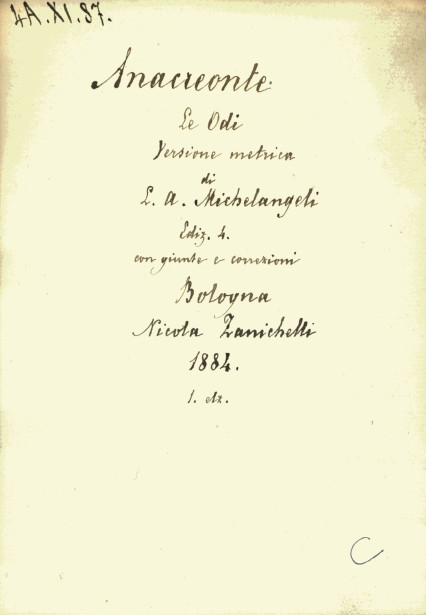 4A.XI.37.
Anacreonte.
Le Odi
Versione metrica
di
L. A. Michelangeli
Ediz. 4.
con giunte e correzioni
Bologna
Nicola Zanichelli
1884.
C